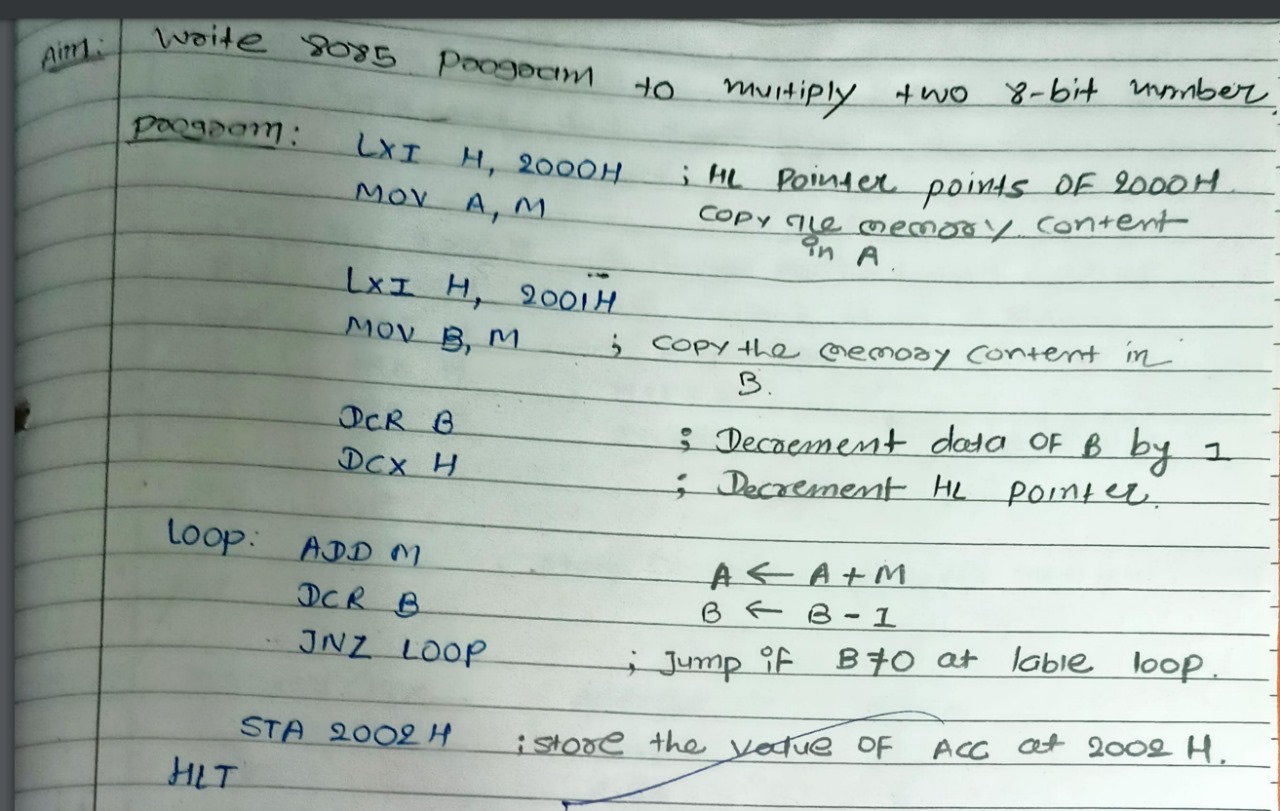 Aim: Write 8085 Program to multiply two 8-bit number.
Program:
LXI H, 2000H ; HL Pointer points OF 2000H
MOV A, M copy the memory content
in A.
LXI H, 2001H
MOV B, M ; copy the memory content in
B.
DCR B ; Decrement data OF B by 1
DCX H ; Decrement HL pointer.
Loop: ADD M A ← A + M
DCR B B ← B - 1
JNZ LOOP ; Jump if B≠0 at lable loop.
STA 2002H ; store the value OF ACC at 2002 H.
HLT